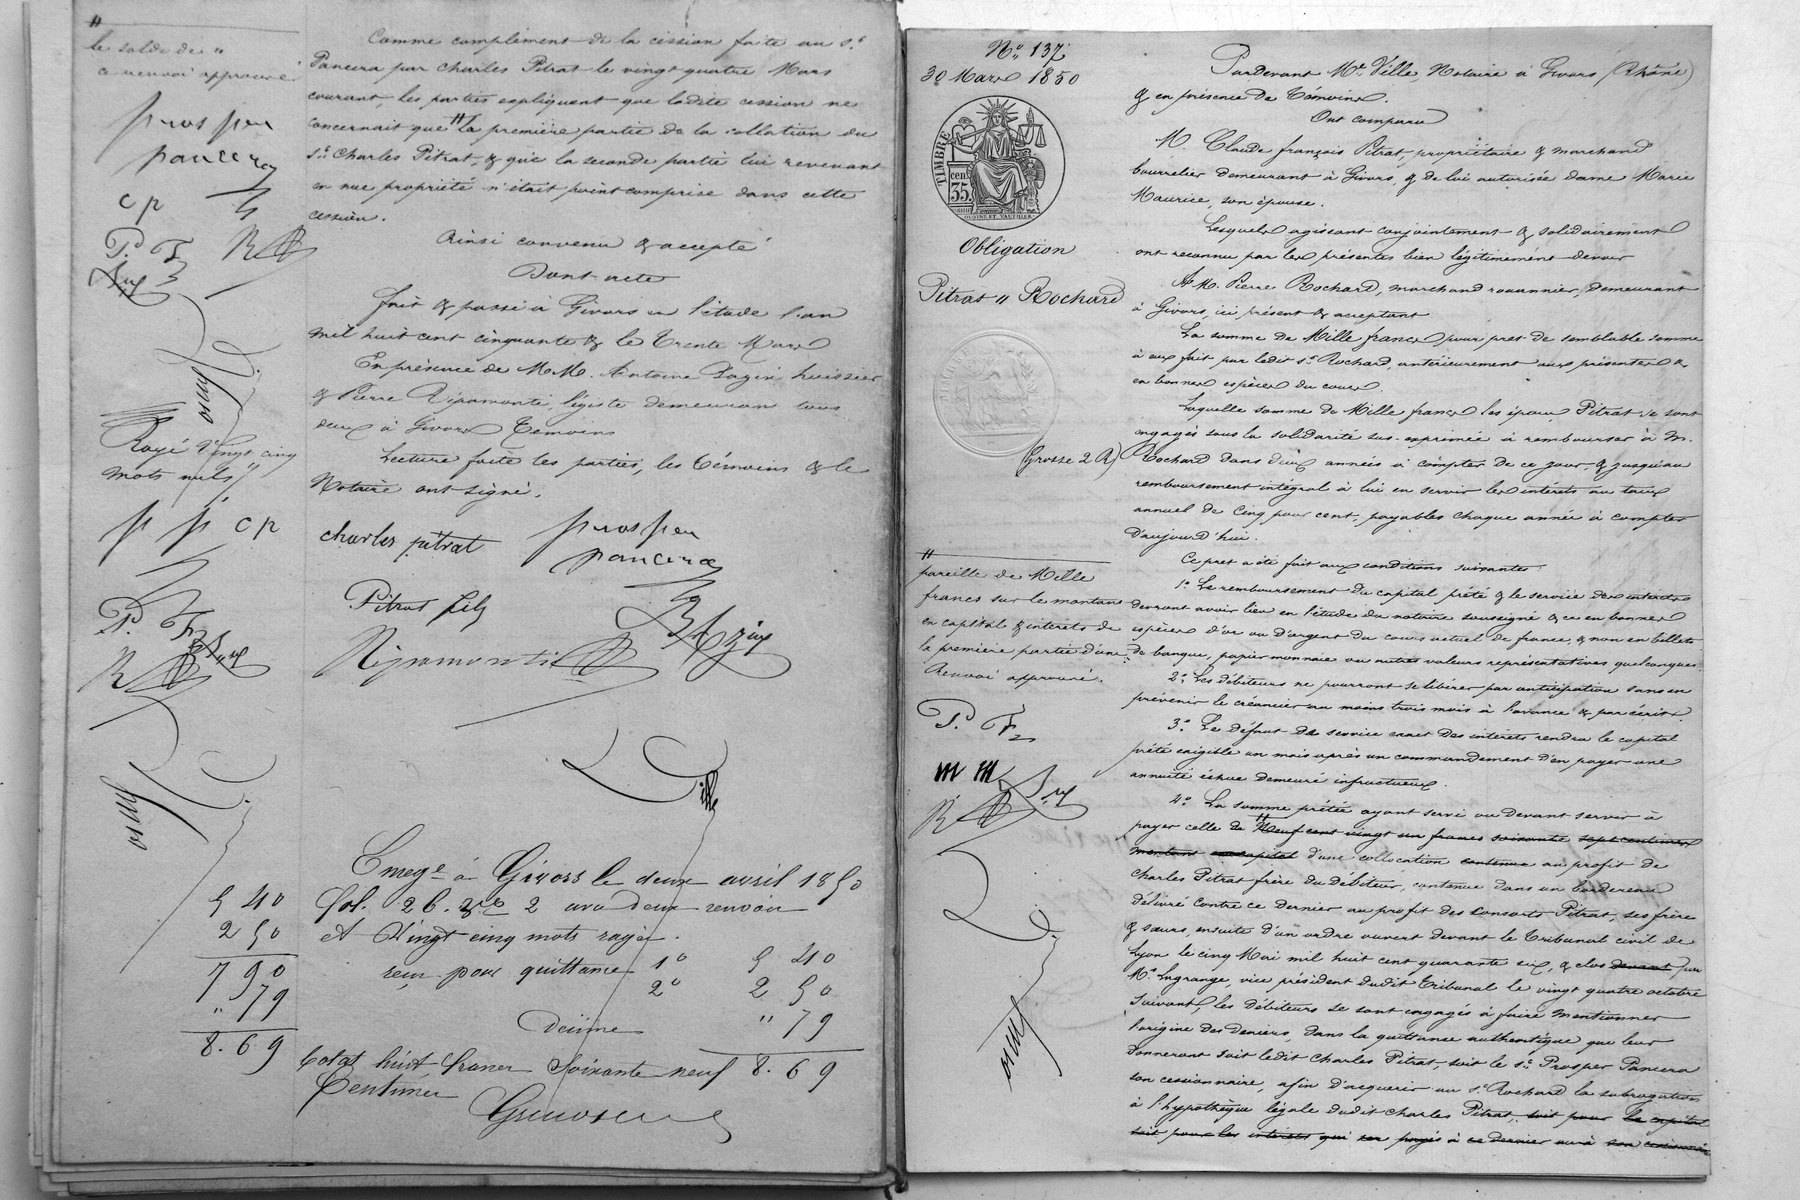 "
le solde de "
ce renvoi approuvé
prosper
pancera
cp
P. F.
Comme complément de la cession faite au Sr.
Pancera par Charles Pitrat le vingt quatre Mars
courant, les parties expliquent que ladite cession ne
concernait que " la première partie de la collation du
Sr. Charles Pitrat, & que la seconde partie lui revenant
en nue propriété n'était point comprise dans cette
cession.
Ainsi convenu & accepté
Dont acte
Fait & passé à Givors en l'étude l'an
mil huit cent cinquante & le Trente Mars
En présence de M.M. Antoine Bazin, huissier
& Pierre Ripamonti, légiste demeurans tous
deux à Givors Temoins
Lecture faite les parties, les témoins & le
Notaire ont signé.
Rayé Vingt cinq
mots nuls
p p cp
P. F.
charles pitrat
prosper
pancera
Pitrat fils
Ripamonti
Ville
Enregé à Givors le deux avril 1850
fol. 26. 2 avec deux renvois
et Vingt cinq mots rayés.
reçu pour quittance 1° 5 40
2° 2 50
Decime " 79
Total huit francs soixante neuf 8.69
Centimes
5 40
2 50
7 90
" 79
8.69
No. 137
30 Mars 1850
TIMBRE
35 cen.
Obligation
Pitrat " Rochard
(Grosse 2 R)
"
pareille de Mille
francs sur le montant
en capital & intérêts de
la première partie d'une
Renvoi approuvé.
P. F.
m m
Pardevant Me. Ville Notaire à Givors (Rhône)
& en présence de Témoins.
Ont comparu
M. Claude françois Pitrat, propriétaire & marchand
bourrelier demeurant à Givors, & de lui autorisée dame Marie
Maurice, son épouse.
Lesquels agissant conjointement & solidairement
ont reconnu par les présentes bien légitimement devoir
A M. Pierre Rochard, marchand rouannier, demeurant
à Givors, ici présent & acceptant
La somme de Mille francs pour pret de semblable somme
à eux fait par ledit Sr. Rochard, antérieurement aux présentes &
en bonnes espèces du cours.
Laquelle somme de Mille francs les époux Pitrat se sont
engagés sous la solidarité sus-exprimée à rembourser à M.
Rochard dans deux années à compter de ce jour, & jusqu'au
remboursement intégral à lui en servir les intérêts au taux
annuel de Cinq pour cent, payables chaque année à compter
d'aujourd'hui.
Ce pret a été fait aux conditions suivantes:
1° Le remboursement du capital prêté & le service des intérêts
devront avoir lieu en l'étude du notaire soussigné & ce en bonnes
espèces d'or ou d'argent du cours actuel de france, & non en billets
de banque, papier monnaie ou autres valeurs représentatives quelconques
2° Les débiteurs ne pourront se libérer par anticipation sans en
prévenir le créancier au moins trois mois à l'avance & par écrit.
3° Le défaut de service exact des intérêts rendra le capital
prêté exigible un mois après un commandement d'en payer une
annuité échue demeuré infructueux.
4° La somme prêtée ayant servi ou devant servir à
payer celle de " Neuf cent vingt un francs soixante sept centimes
montant en capital d'une collocation contenue au profit de
Charles Pitrat frère du débiteur, contenue dans un bordereau
délivré contre ce dernier au profit des consorts Pitrat, ses frère
& sœurs, ensuite d'un ordre ouvert devant le Tribunal civil de
Lyon le cinq Mai mil huit cent quarante six, & clos devant par
Mr. Lagrange, vice président dudit Tribunal le vingt quatre octobre
suivant, les débiteurs se sont engagés à faire mentionner
l'origine des deniers, dans la quittance authentique que leur
donneront soit ledit Charles Pitrat, soit le Sr. Prosper Pancera
son cessionnaire, afin d'acquerir au Sr. Rochard la subrogation
à l'hypothèque légale dudit Charles Pitrat, soit pour le capital
soit pour les intérêts qui seront payés à ce dernier ou à son cessionnaire